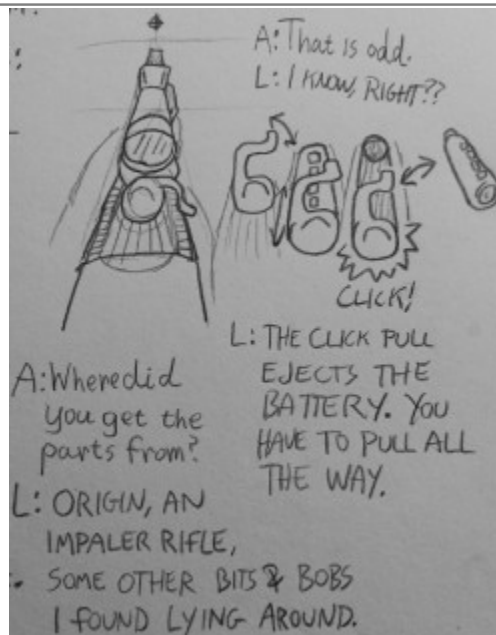 A: That is odd.
L: I KNOW, RIGHT??
CLICK!
L: THE CLICK PULL
EJECTS THE
BATTERY. YOU
HAVE TO PULL ALL
THE WAY.
A: Where did
you get the
parts from?
L: ORIGIN, AN
IMPALER RIFLE,
SOME OTHER BITS & BOBS
I FOUND LYING AROUND.